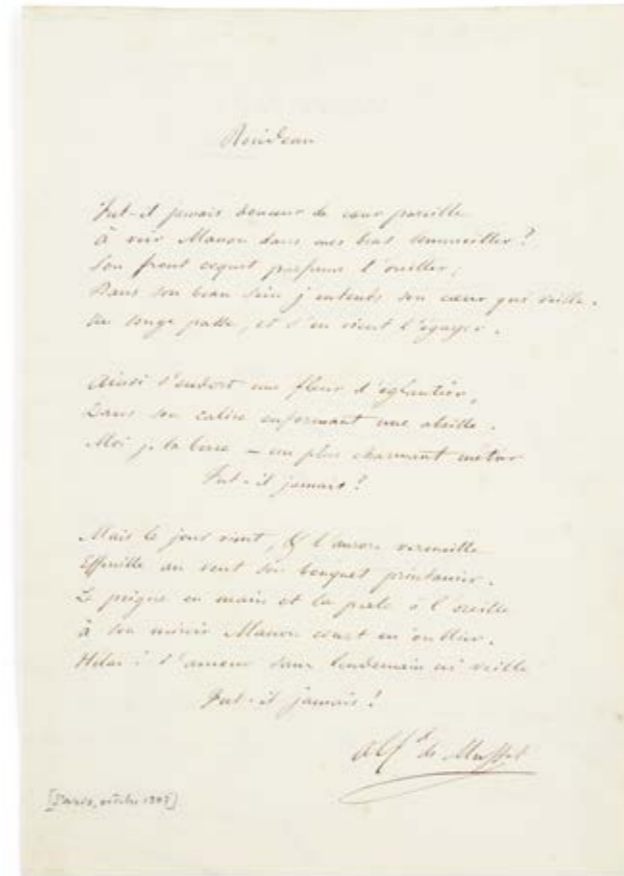 Rondeau
Fut-il jamais douceur de cœur pareille
à voir Manon dans mes bras sommeiller ?
Son front coquet parfume l'oreiller ;
Dans son beau sein j'entends son cœur qui veille.
Un songe passe, et s'en vient l'égayer.
Ainsi s'endort une fleur d'églantier,
Dans son calice enfermant une abeille.
Moi je la berce – un plus charmant métier
Fut-il jamais ?
Mais le jour vient, & l'aurore vermeille
Effeuille au vent son bouquet printanier.
Le peigne en main et la perle à l'oreille
à son miroir Manon court
Hélas ! l'amour sans lendemain ni veille
Fut-il jamais ?
Alf.d de Musset
[Paris, octobre